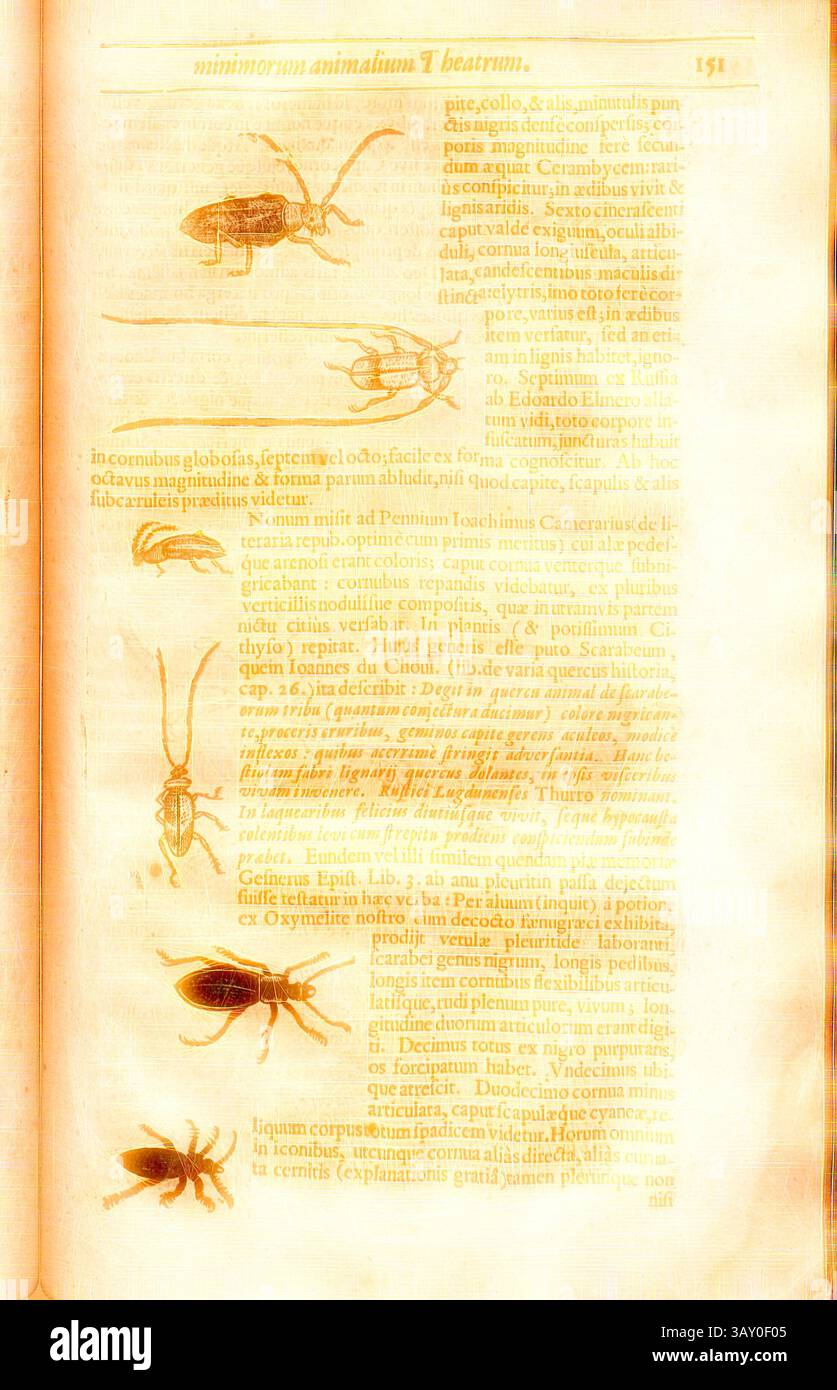 minimorum animalium Theatrum. 151
pite, collo, & alis, minutulis pun
ctis nigris densè conspersis; cor
poris magnitudine ferè secun
dum æquat Cerambycem: rari-
ùs conſpicitur; in ædibus vivit &
lignis aridis. Sexto cineraſcenti
caput valde exiguum, oculi albi
duli, cornua longiuſcula, articu-
lata, candeſcentibus maculis di-
ſtincta: elytris, imo toto ferè cor-
pore, varius eſt; in ædibus
item verſatur, ſed an eti-
am in lignis habitet, igno-
ro. Septimum ex Ruſſia
ab Edoardo Elmero alla-
tum vidi, toto corpore in-
fuſcatum, juncturas habuit
in cornubus globoſas, ſeptem vel octo; facile ex forma cognoſcitur. Ab hoc
octavus magnitudine & forma parum abludit, niſi quod capite, ſcapulis & alis
ſubcæruleis præditus videtur.
Nonum miſit ad Pennium Ioachimus Camerarius (de li-
teraria repub. optimè cum primis meritus) cui alæ pedeſ-
que arenoſi erant coloris; caput cornua venterque ſubni-
gricabant: cornubus repandis videbatur, ex pluribus
verticillis noduliſſue compoſitis, quæ in utramvis partem
nictu citiùs verſabat. In plantis (& potiſſimum Ci-
thyſo) repitat. Hujus generis eſſe puto Scarabeum,
quem Ioannes du Choul. (lib. de varia quercus hiſtoria,
cap. 26.) ita deſcribit: Degit in quercu animal de ſcarabe-
orum tribu (quantum conjectura ducimur) colore nigrican-
te, proceris cruribus, geminos capite gerens aculeos, modicè
inflexos: quibus acerrimè ſtringit adverſantia. Hanc be-
ſtiolam fabri lignarij quercus dolantes, in ipſis viſceribus
vivam invenere. Ruſtici Lugdunenſes Thurro nominant.
In laquearibus felicius diutiuſque vivit, ſeque hypocauſta
colentibus levi cum ſtrepitu prodiens conſpiciendum ſubinde
præbet. Eundem vel illi ſimilem quendam piæ memoriæ
Geſnerus Epiſt. Lib. 3. ab anu pleuritin paſſa dejectum
fuiſſe teſtatur in hæc verba: Per aluum (inquit) à potion.
ex Oxymelite noſtro cum decocto fænugræci exhibita,
prodijt vetulæ pleuritide laboranti,
ſcarabei genus nigrum, longis pedibus,
longis item cornubus flexibilibus articu-
latiſque, rudi plenum pure, vivum; lon-
gitudine duorum articulorum erant digi-
ti. Decimus totus ex nigro purpurans,
os forcipatum habet. Vndecimus ubi-
que atreſcit. Duodecimo cornua minus
articulata, caput ſcapulæque cyaneæ, re-
liquum corpus totum ſpadicem videtur. Horum omnium
in iconibus, utcunque cornua aliàs directa, aliàs curva-
ta cernitis (explanationis gratiâ) tamen plerunque non
niſi
alamy
Image ID: 3AY0F05
www.alamy.com